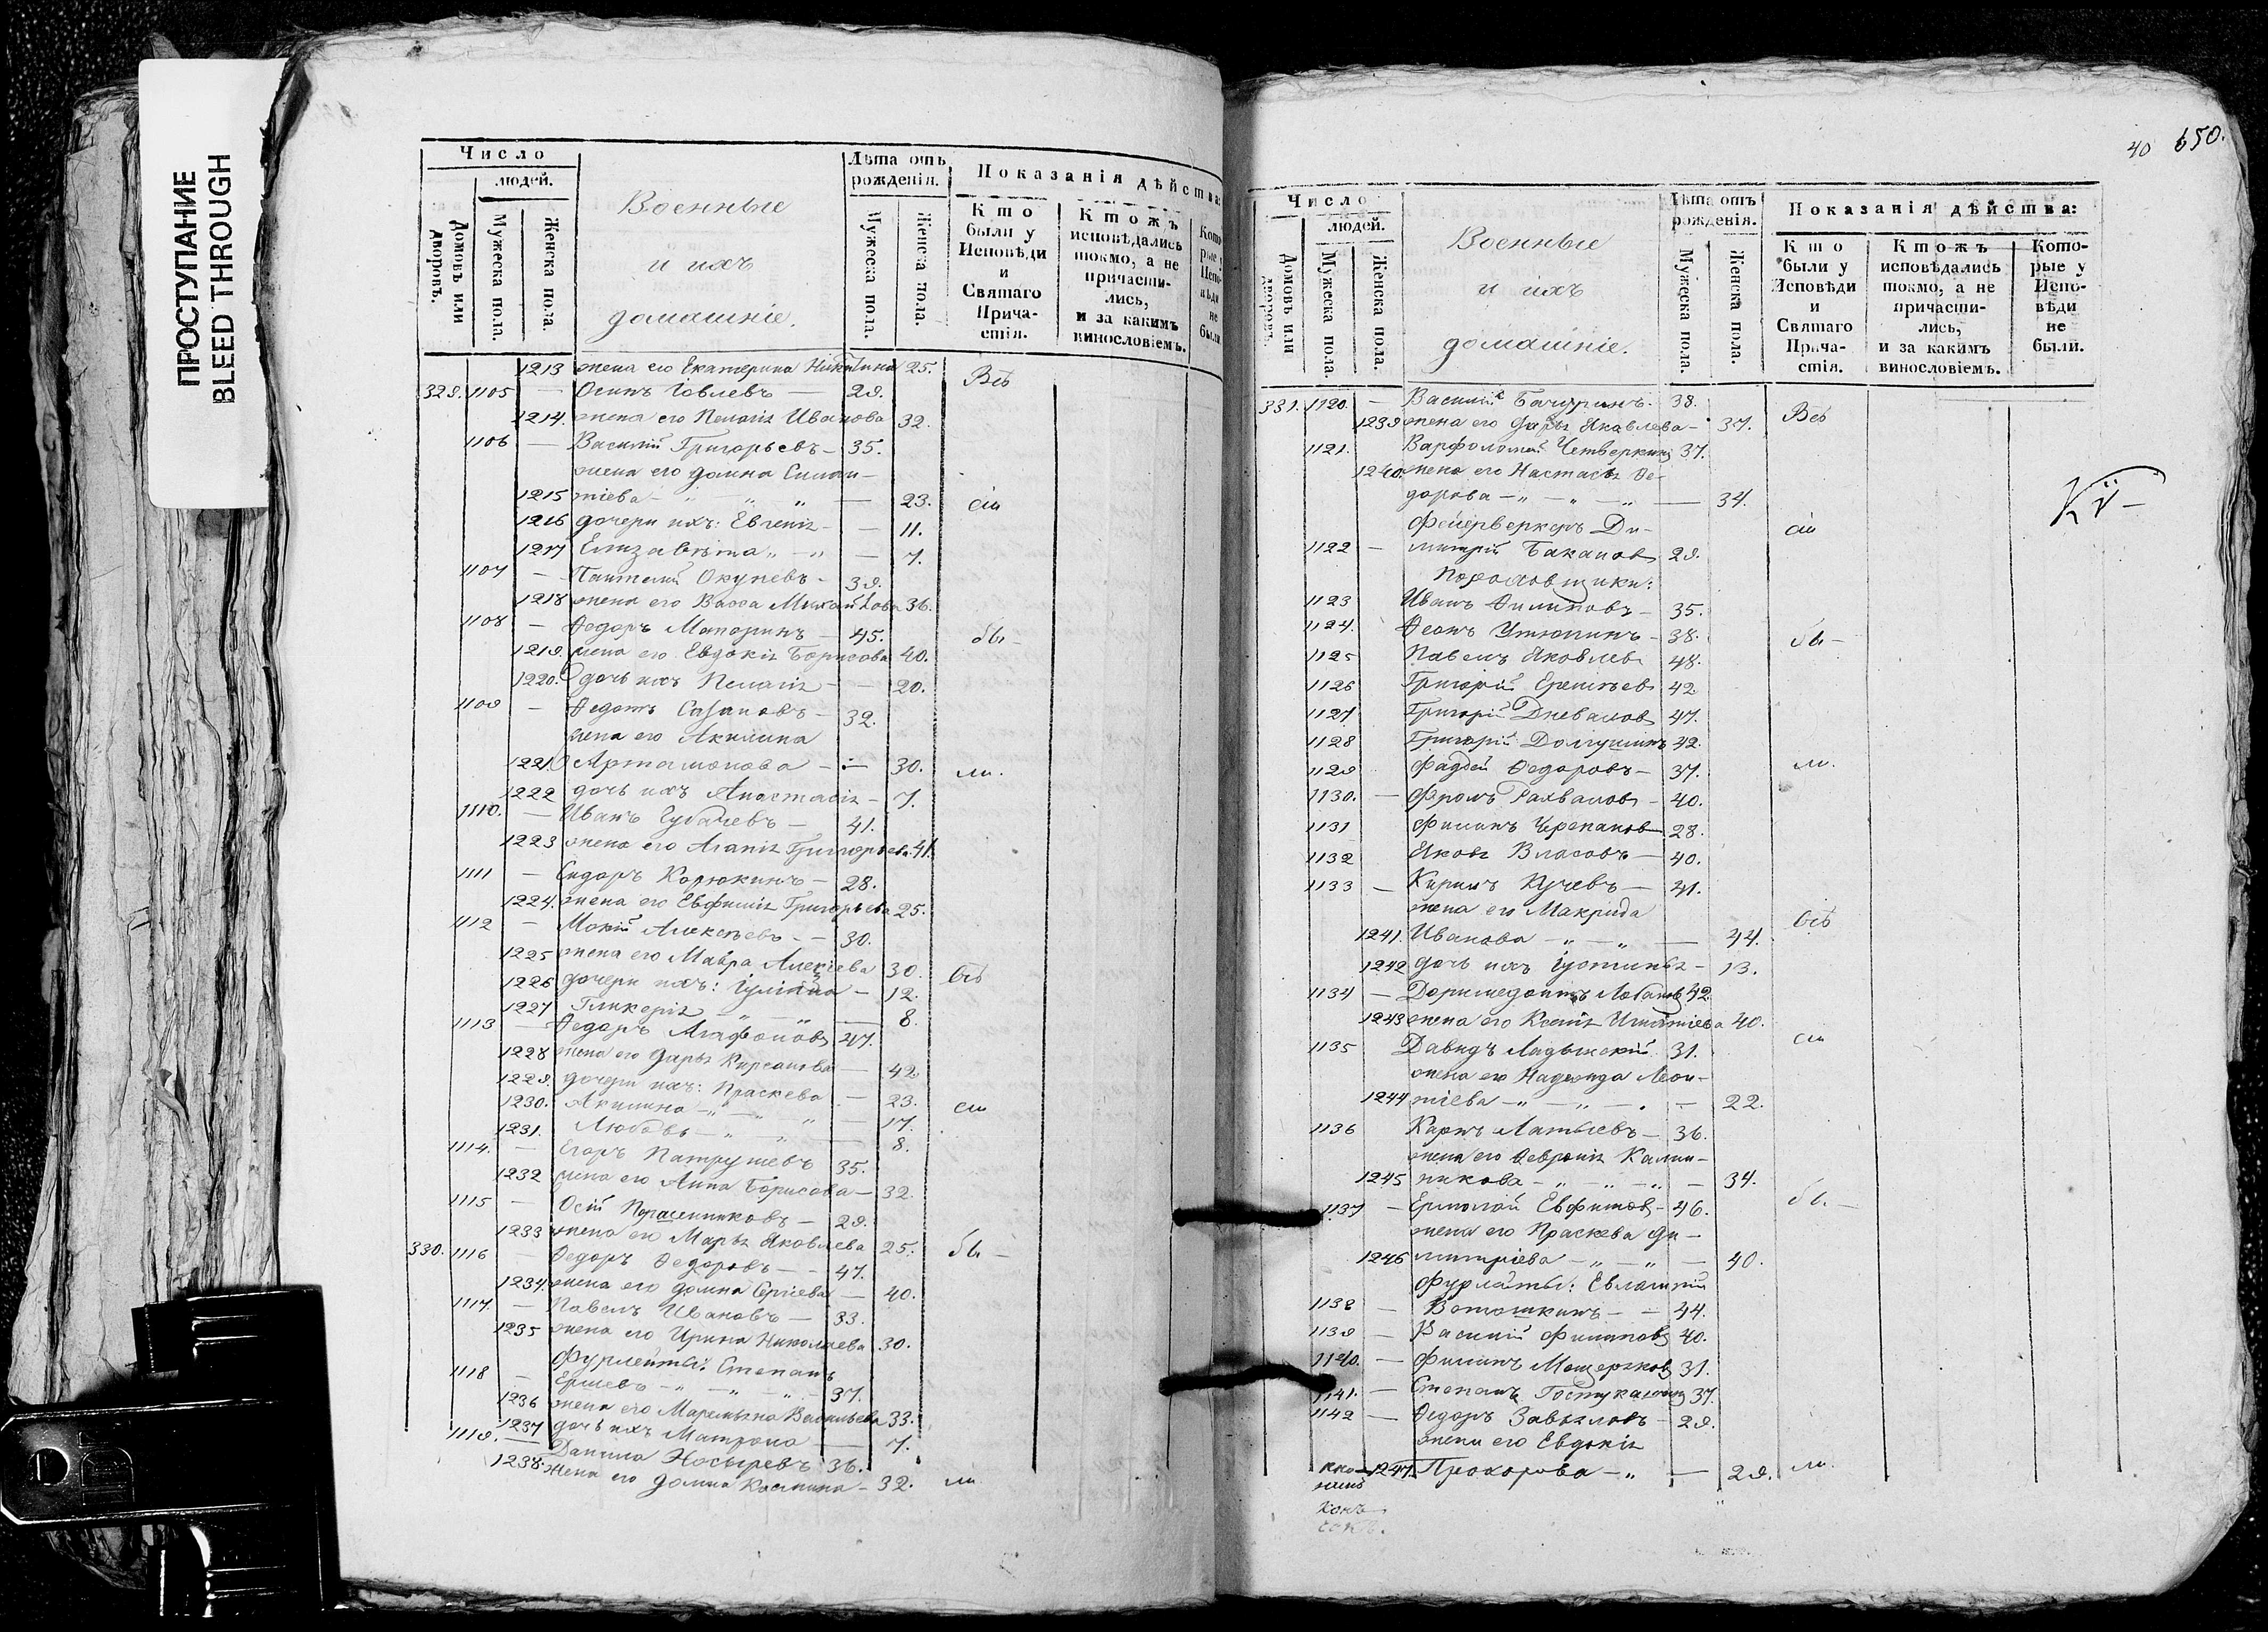 ПРОСТУПАНИЕ
BLEED THROUGH
Число
людей.
Домовъ или дворовъ.
Мужеска пола.
Женска пола.
Военные
и ихъ
домашніе.
Лѣта отъ
рожденія.
Мужеска пола.
Женска пола.
Показанія дѣйства:
Кто
были у
Исповѣди
и
Святаго
Прича-
стія.
Ктожъ
исповѣдались
токмо, а не
причасти-
лись,
и за какимъ
винословіемъ.
Кото
рые у
Испо-
вѣди
не
были
1213 жена его Екатерина Никитина 25.
329. 1105 — Осипъ Іовлевъ — 29.
Всѣ
1214. жена его Пелагія Иванова 32.
1106 — Василій Григорьевъ — 35.
жена его Домна Силан-
1215 тіева — „ — „ — 23.
сіи
1216 дочери ихъ: Евгенія — — 11.
1217 Елизавѣта „ — „ — 7.
1107 — Пантелей Окуневъ — 39.
1218 жена его Васса Михайлова 36.
1108 — Ѳедоръ Маторинъ — 45.
бы —
1219. жена его Евдокія Борисова 40.
1220. дочь ихъ Пелагія — — 20.
1109 — Ѳедотъ Сазановъ — 32.
жена его Акилина
1221. Артамонова — — 30.
ли.
1222 дочь ихъ Анастасія — 7.
1110. — Иванъ Губачевъ — 41.
1223 жена его Агапія Григорьева 41.
1111 — Сидоръ Корюкинъ — 28.
1224. жена его Евфимія Григорьева 25.
1112 — Мокій Алексѣевъ — — 30.
1225 жена его Мавра Алексіева 30.
всѣ
1226 дочери ихъ: — 12.
1227 Гликерія — „ — „ — 8.
1113 — Ѳедоръ Агафоновъ 47.
1228 жена его Дарья Кирсанова — 42
1229. дочери ихъ: Праскева — 23.
1230. Акилина — „ — „ — 17.
сіи
1231. Любовь — „ „ — 8.
1114. — Егоръ Патрушевъ 35.
1232 жена его Анна Борисова — 32.
1115 — — 29.
1233 жена его Марья Яковлева 25.
бы —
330. 1116 — Ѳедоръ Ѳедоровъ — — 47.
1234. жена его Домна Сергіева — 40.
1117. — Павелъ Ивановъ — 33.
1235 жена его Ирина Николаева 30.
Фурлейты: Степанъ
1118 — Ершевъ — „ — „ — „ 37.
1236 жена его Маремьяна Васильева 33.
1237 дочь ихъ Матрона — — 7.
1119. — Данила Носыревъ 36.
1238. жена его Домна Космина — 32.
ли
40 650.
Число
людей.
Домовъ или дворовъ.
Мужеска пола.
Женска пола.
Военные
и ихъ
домашніе.
Лѣта отъ
рожденія.
Мужеска пола.
Женска пола.
Показанія дѣйства:
Кто
были у
Исповѣди
и
Святаго
Прича-
стія.
Ктожъ
исповѣдались
токмо, а не
причасти-
лись,
и за какимъ
винословіемъ.
Кото-
рые у
Испо-
вѣди
не
были.
331. 1120. — Василій Бачуринъ — 38.
Всѣ
1239 жена его Дарья Яковлева — 37.
1121. Варфоломей Четверкинъ 37.
1240. жена его Настасья Ѳе-
дорова — „ — „ — „ — 34.
Фейерверкеръ Ди-
сіи
1122 — митрій Бакановъ 29.
Пороховщики:
1123 Иванъ Филиповъ — 35.
1124. Ѳеотъ Утюпинъ — 38.
бы —
1125 Павелъ Яковлевъ 48.
1126 Григорій 42
1127 Григорій Дневаловъ 47.
1128 Григорій Долгушинъ 42.
1129 Фадѣй Ѳедоровъ — 37.
ли.
1130. — Фролъ Рахваловъ — 40.
1131 Филипъ Черепановъ 28.
1132 Яковъ Власовъ — 40.
1133 — Кирилъ Кучевъ — 41.
жена его Макрида
всѣ
1241. Иванова — „ — „ — 44.
1242 дочь ихъ Іустинья — 13.
1134 — Доримедонтъ Лобановъ 42
1243 жена его Ксенія Игнатіева 40.
сіи
1135 Давидъ Ладыжскій 31.
жена его Надежда Леон-
1244 тіева — „ — „ — . — 22.
1136 Карпъ Латышевъ — 36.
жена его Ѳевронія Калин-
1245 никова — „ — „ — „ — 34.
1137 — Ермолай Евфимовъ — 46.
бы. —
жена его Праскева Ди-
1246 митріева — „ — „ — 40.
Фурлейты: Евлампій
1138 — Ватошкинъ — — 44.
1139 — Василій Филиповъ 40.
1140. — Филипъ Мещеряковъ 31.
1141. — Степанъ 37.
1142 — Ѳедоръ Завьяловъ — 29.
жена его Евдокія
1247. Прохорова — „ — 29.
ли.